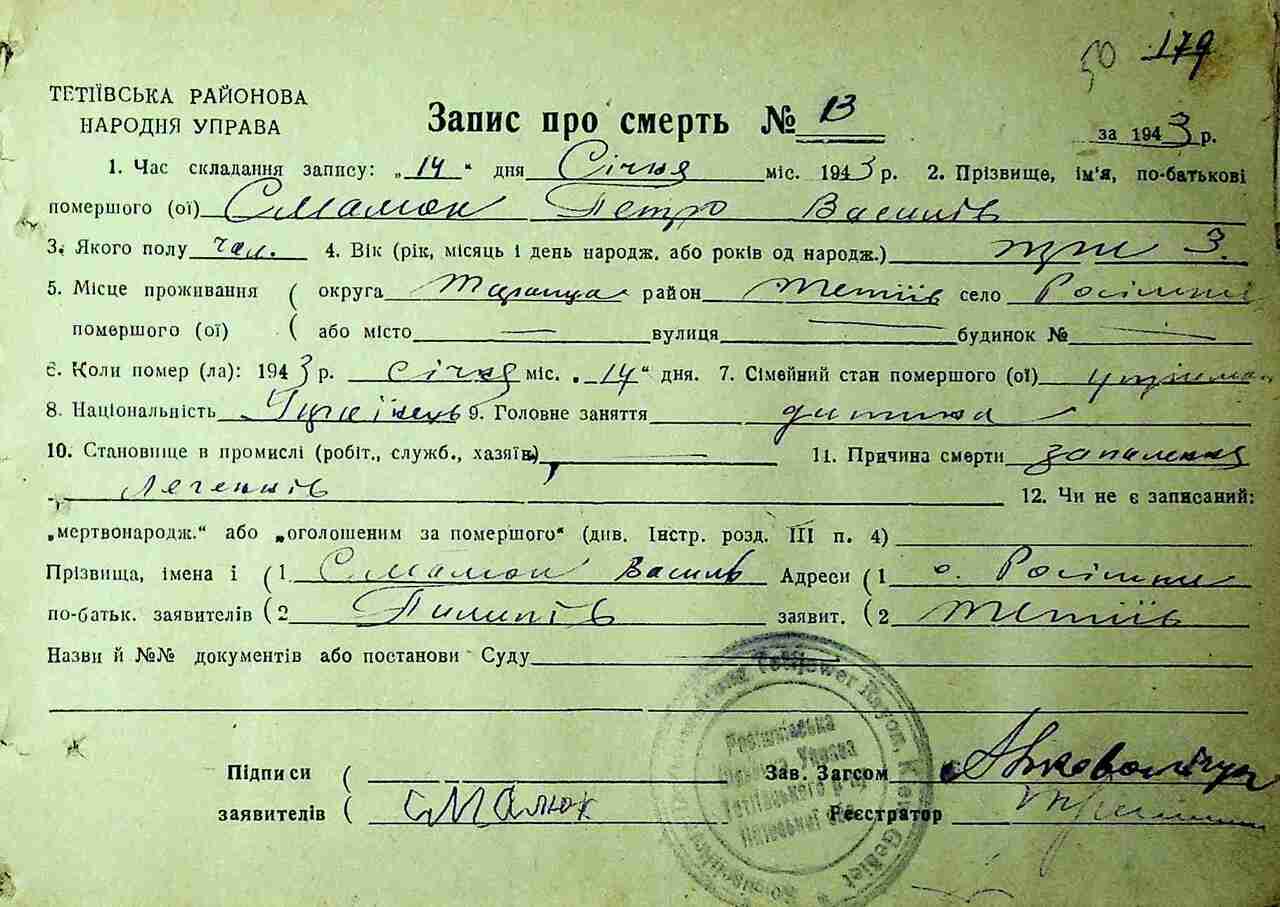 50 179
ТЕТІЇВСЬКА РАЙОНОВА
НАРОДНЯ УПРАВА
Запис про смерть № 13
за 1943 р.
1. Час складання запису: „14“ дня Січня міс. 1943 р. 2. Прізвище, ім'я, по-батькові
помершого (ої) Смалюк Петро Василів
3. Якого полу чол. 4. Вік (рік, місяць і день народж. або років од народж.) три 3.
5. Місце проживання ( округа Тараща район Тетіїв село Росішки
помершого (ої) ( або місто — вулиця — будинок № —
6. Коли помер (ла): 1943 р. січня міс. „14“ дня. 7. Сімейний стан помершого (ої)
8. Національність Українець 9. Головне заняття дитина
10. Становище в промислі (робіт., служб., хазяїн) — 11. Причина смерти запалення
легенів 12. Чи не є записаний:
„мертвонародж.“ або „оголошеним за помершого“ (див. Інстр. розд. III п. 4)
Прізвища, імена і ( 1. Смалюк Василь Адреси ( 1 с. Росішки
по-батьк. заявителів ( 2 Пилипів заявит. ( 2 Тетіїв
Назви й №№ документів або постанови Суду —
Tetijewer Rayon, Kiew Gebiet
Росішківська
Управа
Тетіївського р-ну
Київської обл.
Підписи ( Зав. Загсом
заявителів ( Смалюк Реєстратор